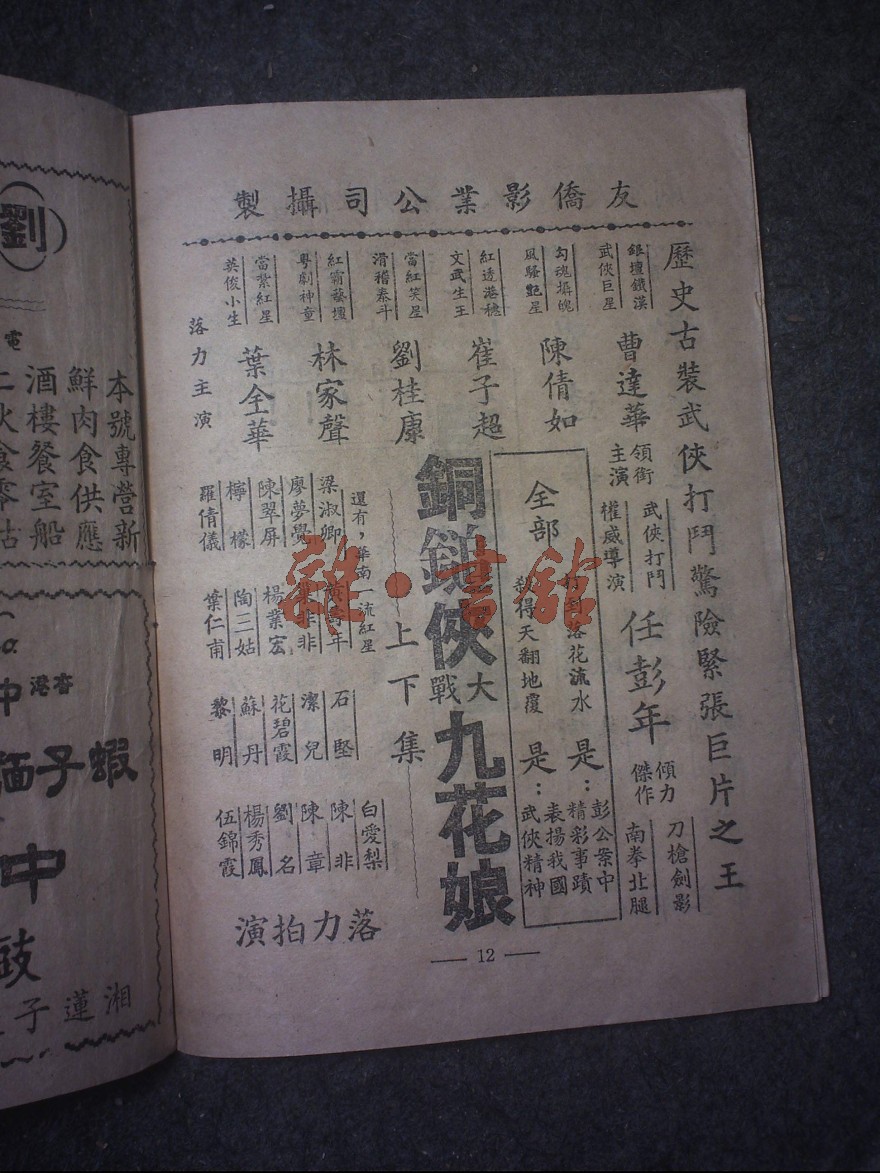 友僑影業公司攝製
歷史古裝武俠打鬥驚險緊張巨片之王
銀壇鐵漢
武俠巨星
曹達華
領銜
主演
勾魂攝魄
風騷艷星
陳倩如
紅透港穗
文武生王
崔子超
當紅笑星
滑稽泰斗
劉桂康
紅霸藝壇
粵劇神童
林家聲
當紮紅星
英俊小生
葉全華
落力主演
武俠打鬥
權威導演
任彭年
傾力
傑作
刀槍劍影
南拳北腿
全部
打到落花流水
殺得天翻地覆
是：
彭公案中
精彩事蹟
是：
表揚我國
武俠精神
銅鎚俠大戰九花娘
上下集
還有，華南一流紅星
梁淑卿
石堅
白愛梨
廖夢覺
葉非非
潔兒
陳非
陳翠屏
楊業宏
花碧霞
陳章
檸檬
陶三姑
蘇丹
劉名
羅倩儀
葉仁甫
黎明
楊秀鳳
伍錦霞
落力拍演
— 12 —
劉
電
本號專營新
鮮肉食供應
酒樓餐室船
香港
蝦子
中
湘蓮子
雜·書館